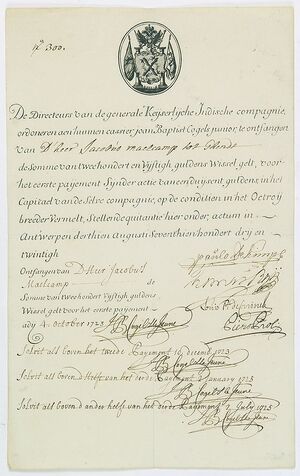 N.º 300.
De Directeurs van de generale Keyserlycke Indische compagnie,
ordoneren aen hunnen cassier, jean Baptist Cogels junior, te ontfangen
van D'heer Jacobus Maelcamp tot Ghendt
de Somme van tweehondert en Vijftigh guldens Wissel gelt, voor
het eerste payement Synder actie van een duysent guldens, in het
Capitael van de Selve compagnie, op de conditien in het Octroij
breeder Vermelt, Stellende quitantie hier onder, actum in
Antwerpen derthien Augusti Seventhien hondert dry en
twintigh
Ontfangen van D'Heer Jacobus
Maelcamp de
Somme van tweehondert Vijftigh guldens
Wissel gelt voor het eerste payement
ady 4. October 1723
JB Cogels de Jeune
Solvit als boven het tweede Payement 16 decemb 1723
JB Cogels de Jeune
Solvit als boven d'Helft van het derde Payement January 1725
JB Cogels de Jeune
Solvit als boven d'ander helft van het derde Payement 2 July 1725
JB Cogels de Jeune